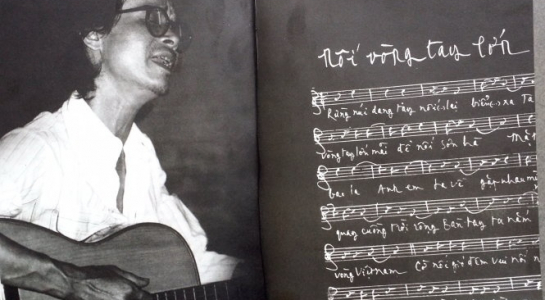 Nối vòng tay lớn
Rừng núi dang tay nối lại biển xa Ta
vòng tay lớn mãi để nối sơn hà Mặt
bao la Anh em ta về gặp nhau
quay cuồng trời rộng Bàn tay ta nắm
vòng Việt Nam Cờ nối gió đêm vui nối